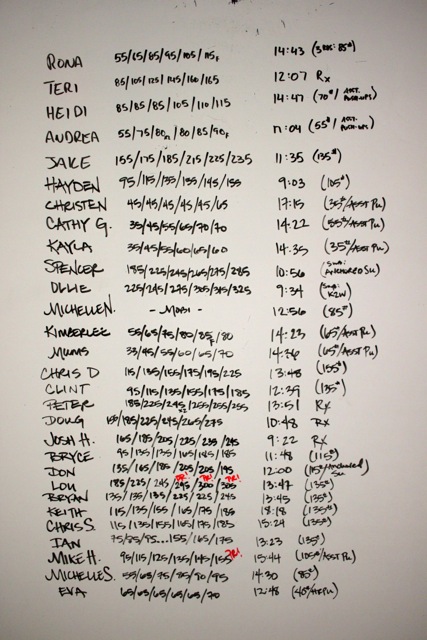 RONA 55/65/65/95/105/115F 14:43 (85#)
TERI 85/105/125/145/160/165 12:07 Rx
HEIDI 85/85/85/105/110/115 14:47 (70#/ASST. PUSH-UPS)
ANDREA 55/75/80F/80/85/90F 17:04 (55#/ASST. PUSH-UPS)
JAKE 155/175/185/215/225/235 11:35 (135#)
HAYDEN 95/115/135/135/145/155 9:03 (105#)
CHRISTEN 45/45/45/45/45/65 17:15 (35#/ASST PU)
CATHY G. 35/45/55/65/70/70 14:22 (55#/ASST PU)
KAYLA 35/45/55/60/65/60 14:35 (35#/ASST PU)
SPENCER 185/225/245/265/275/285 10:56 (SUB: ANCHORED SU)
OLLIE 225/245/275/305/315/325 9:34 (SUB: K2W)
MICHELLE N. - MOBI - 12:56 (85#)
KIMBERLEE 55/65/75/80/85F/80 14:23 (65#/ASST PU)
MUMS 33/45/55/60/65/70 14:36 (65#/ASST PU)
CHRIS D 115/135/155/175/195/225 13:48 (155#)
CLINT 95/115/135/155/175/185 12:39 (135#)
PETER 185/225/245/255/255/255 13:51 Rx
DOUG 155/185/225/245/265/275 10:48 Rx
JOSH H. 165/185/205/225/235/245 9:22 Rx
BRYCE 95/135/135/165/185/185 11:48 (115#)
DON 135/165/185/205/205/195 12:00 (115#/ANCHORED SU)
LOU 185/225/245/295 PR!/300 PR!/305 PR! 13:47 (135#)
BRYAN 135/135/185/225/225/245 13:45 (135#)
KEITH 115/135/155/165/175/185 18:18 (135#)
CHRIS S. 115/135/155/165/175/185 15:24 (135#)
IAN 75/85/95...155/165/175 13:23 (135#)
MIKE H. 95/115/125/135/145/155 PR! 15:44 (105#/ASST PU)
MICHELLE S. 55/65/75/85/90/95 14:30 (85#)
EVA 65/65/65/65/65/70 12:48